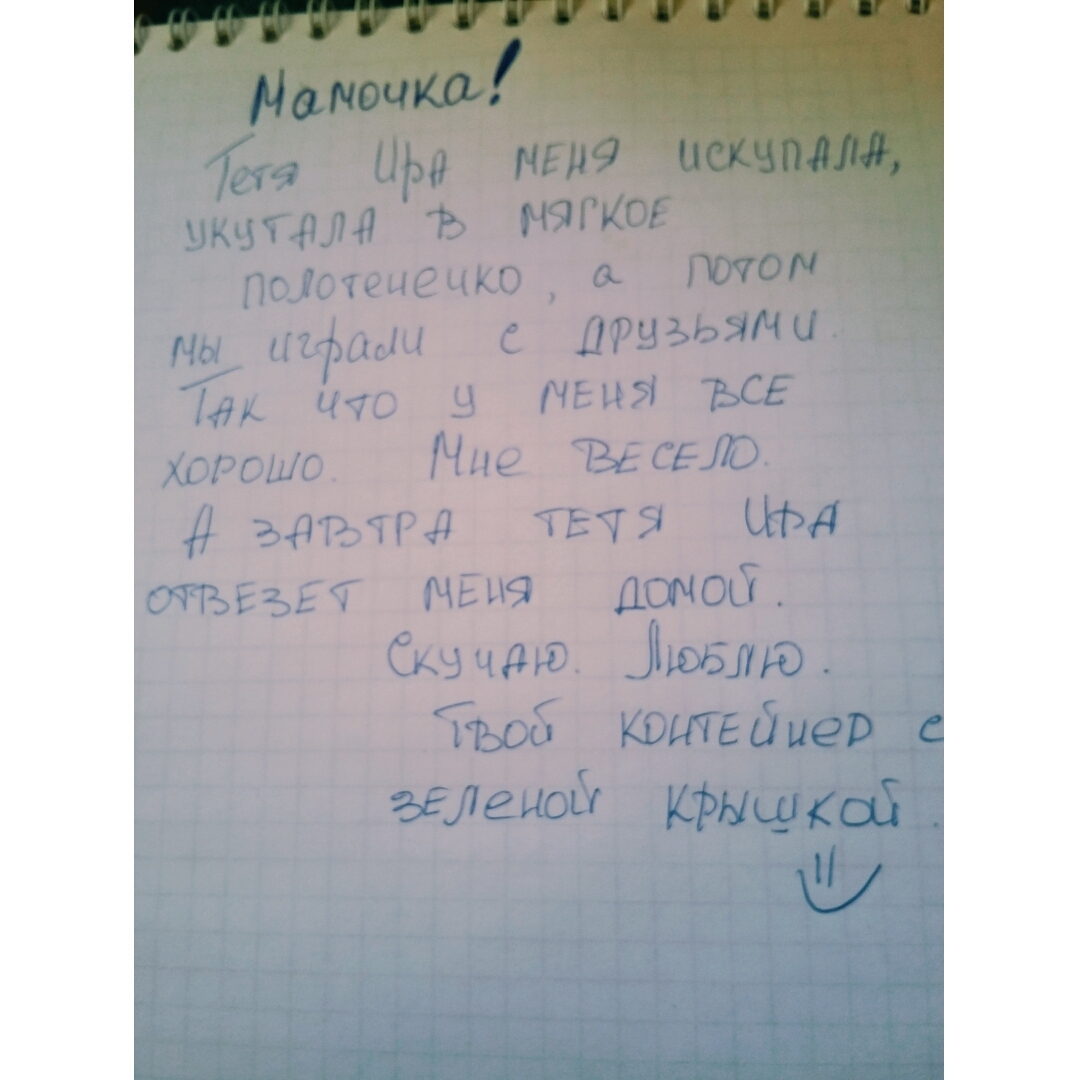 Мамочка!
Тетя Ира меня искупала,
укутала в мягкое
полотенечко, а потом
мы играли с друзьями.
Так что у меня все
хорошо. Мне весело.
А завтра тетя Ира
отвезет меня домой.
Скучаю. Люблю.
Твой контейнер с
зеленой крышкой.